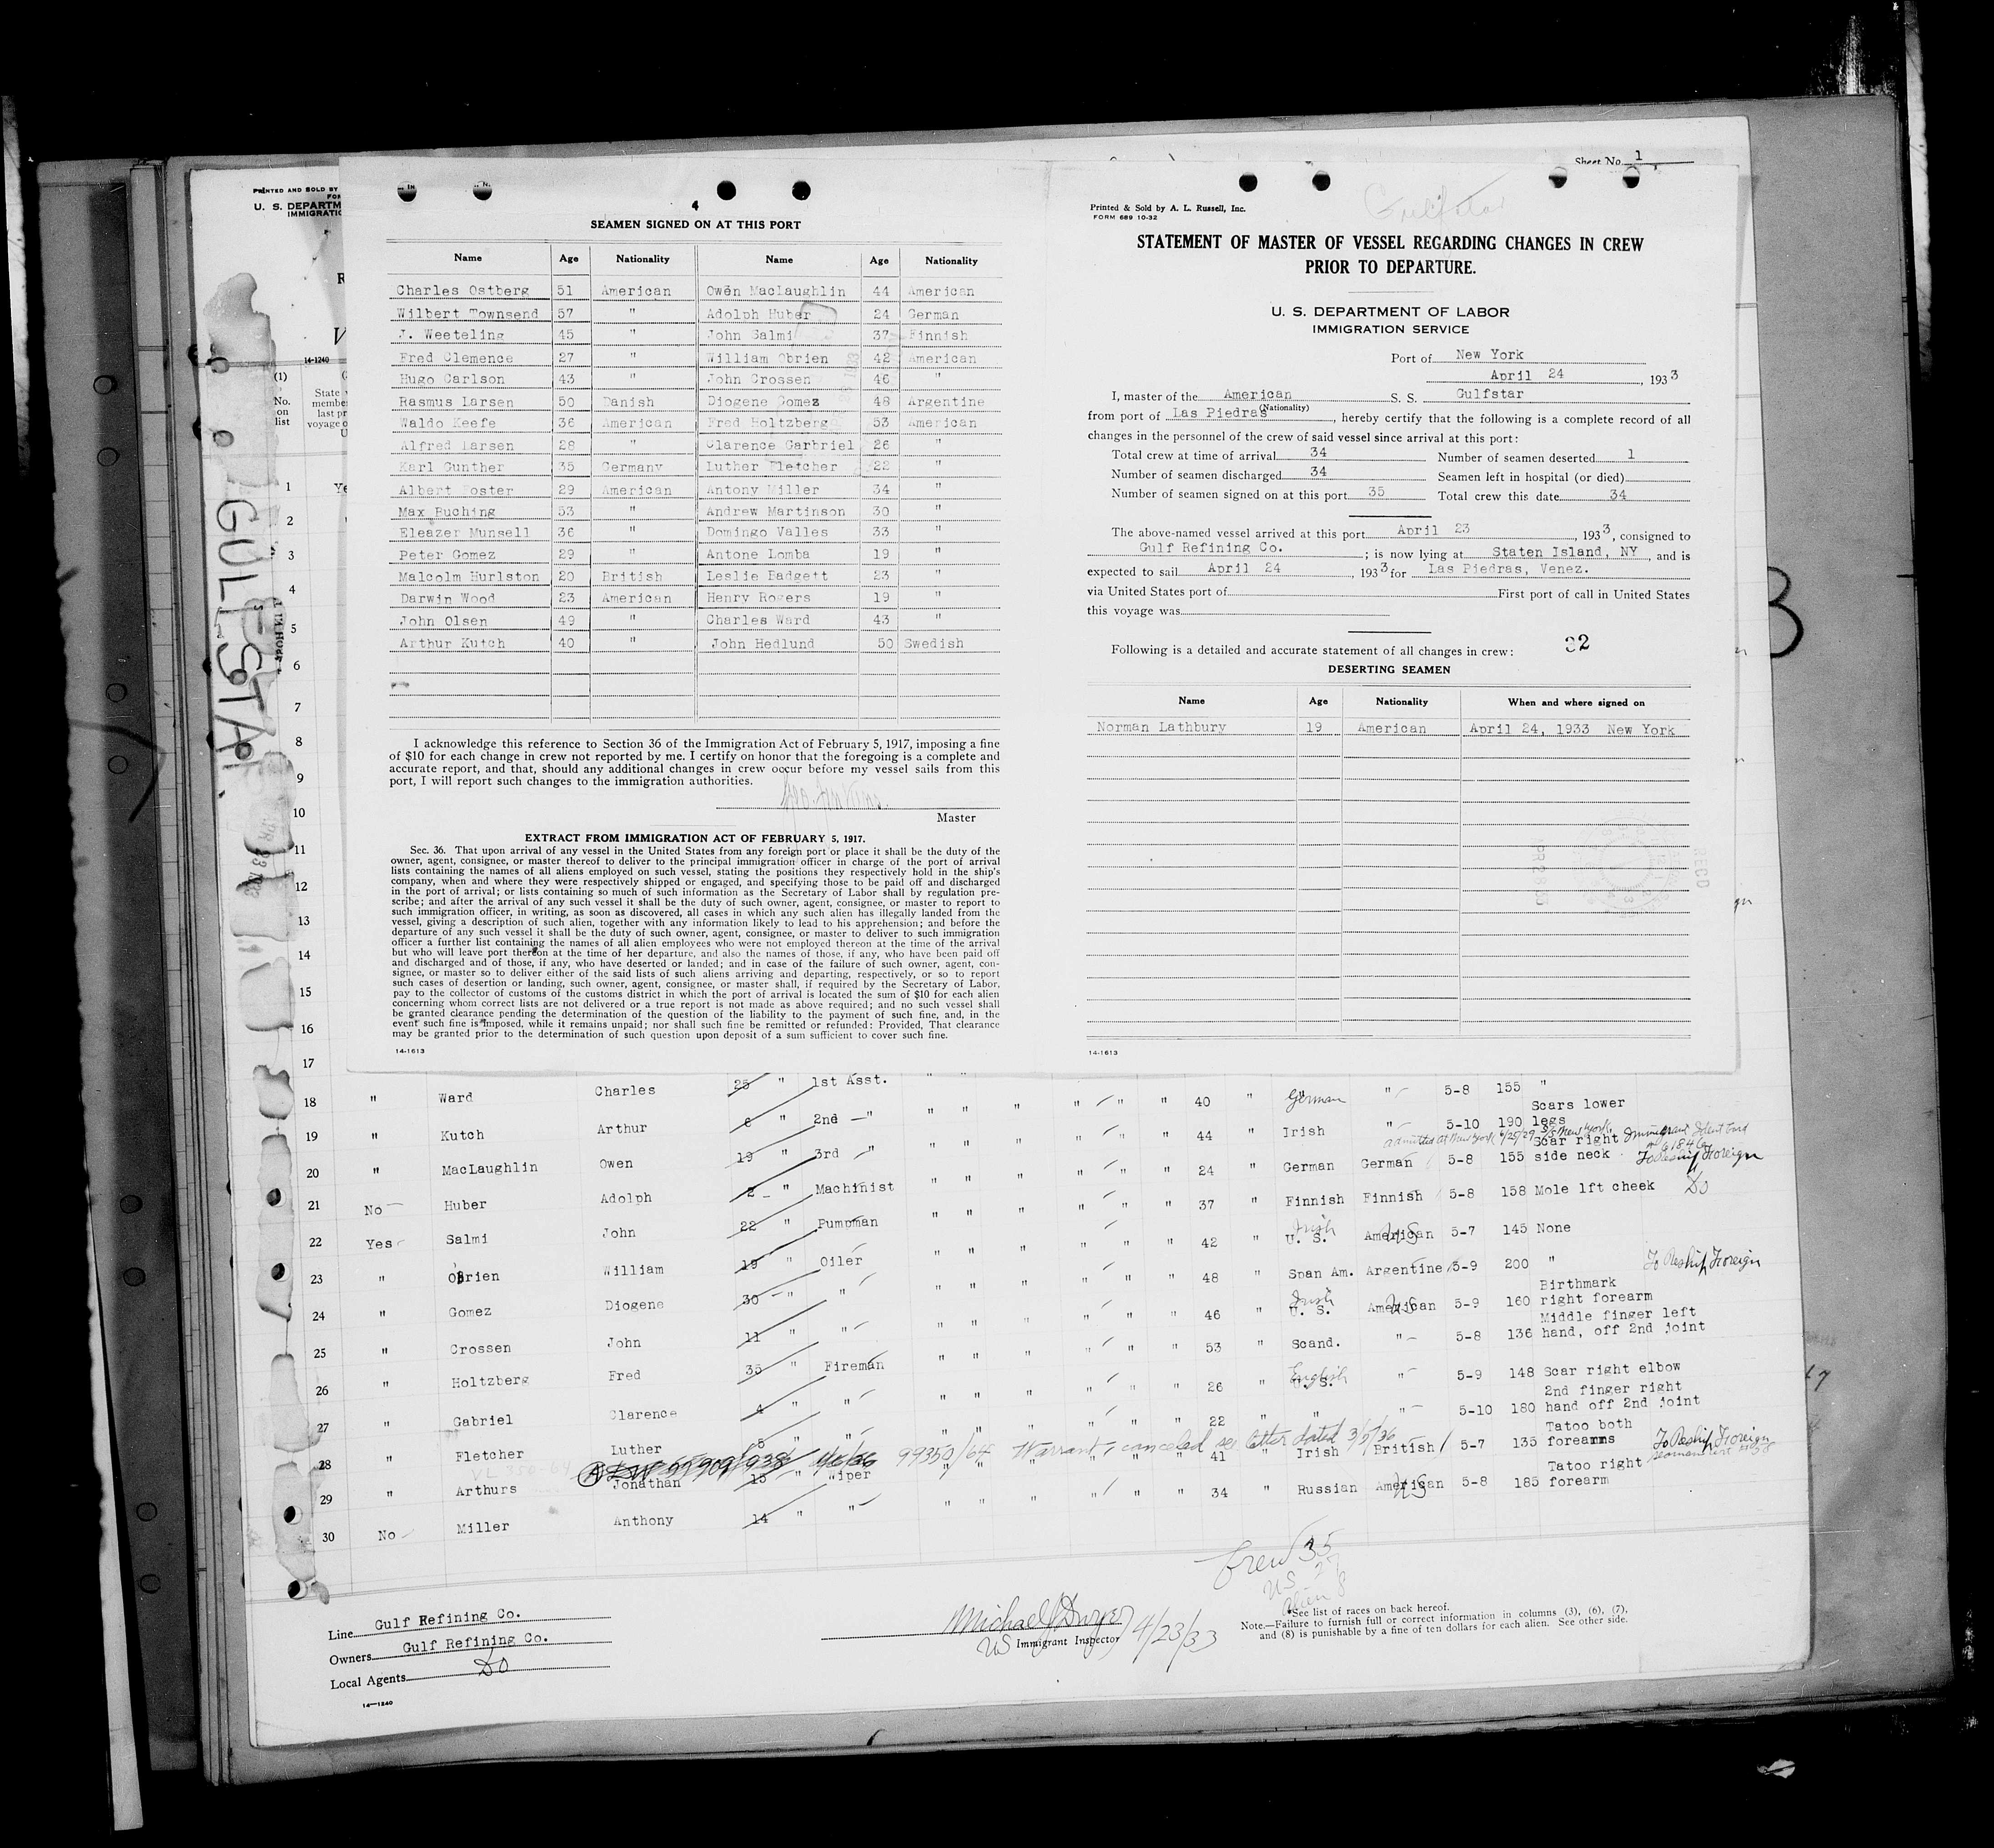 Sheet No. 1
PRINTED AND SOLD BY
U. S. DEPARTM
IMMIGRATIO
14-1240
(1)
No.
on
list
State
membe
last pr
voyage o
GULFSTAR
4
SEAMEN SIGNED ON AT THIS PORT
Name Age Nationality Name Age Nationality
Charles Ostberg 51 American Owen Maclaughlin 44 American
Wilbert Townsend 57 " Adolph Huber 24 German
J. Weeteling 45 " John Salmi 37 Finnish
Fred Clemence 27 " William Obrien 42 American
Hugo Carlson 43 " John Crossen 46 "
Rasmus Larsen 50 Danish Diogene Gomez 48 Argentine
Waldo Keefe 36 American Fred Holtzberg 53 American
Alfred Larsen 28 " Clarence Garbriel 26 "
Karl Gunther 35 Germany Luther Fletcher 22 "
Albert Foster 29 American Antony Miller 34 "
Max Buching 53 " Andrew Martinson 30 "
Eleazer Munsell 36 " Domingo Valles 33 "
Peter Gomez 29 " Antone Lomba 19 "
Malcolm Hurlston 20 British Leslie Badgett 23 "
Darwin Wood 23 American Henry Rogers 19 "
John Olsen 49 " Charles Ward 43 "
Arthur Kutch 40 " John Hedlund 50 Swedish
I acknowledge this reference to Section 36 of the Immigration Act of February 5, 1917, imposing a fine
of $10 for each change in crew not reported by me. I certify on honor that the foregoing is a complete and
accurate report, and that, should any additional changes in crew occur before my vessel sails from this
port, I will report such changes to the immigration authorities.
Master
EXTRACT FROM IMMIGRATION ACT OF FEBRUARY 5, 1917.
Sec. 36. That upon arrival of any vessel in the United States from any foreign port or place it shall be the duty of the
owner, agent, consignee, or master thereof to deliver to the principal immigration officer in charge of the port of arrival
lists containing the names of all aliens employed on such vessel, stating the positions they respectively hold in the ship's
company, when and where they were respectively shipped or engaged, and specifying those to be paid off and discharged
in the port of arrival; or lists containing so much of such information as the Secretary of Labor shall by regulation pre-
scribe; and after the arrival of any such vessel it shall be the duty of such owner, agent, consignee, or master to report to
such immigration officer, in writing, as soon as discovered, all cases in which any such alien has illegally landed from the
vessel, giving a description of such alien, together with any information likely to lead to his apprehension; and before the
departure of any such vessel it shall be the duty of such owner, agent, consignee, or master to deliver to such immigration
officer a further list containing the names of all alien employees who were not employed thereon at the time of the arrival
but who will leave port thereon at the time of her departure, and also the names of those, if any, who have been paid off
and discharged and of those, if any, who have deserted or landed; and in case of the failure of such owner, agent, con-
signee, or master so to deliver either of the said lists of such aliens arriving and departing, respectively, or so to report
such cases of desertion or landing, such owner, agent, consignee, or master shall, if required by the Secretary of Labor,
pay to the collector of customs of the customs district in which the port of arrival is located the sum of $10 for each alien
concerning whom correct lists are not delivered or a true report is not made as above required; and no such vessel shall
be granted clearance pending the determination of the question of the liability to the payment of such fine, and, in the
event such fine is imposed, while it remains unpaid; nor shall such fine be remitted or refunded: Provided, That clearance
may be granted prior to the determination of such question upon deposit of a sum sufficient to cover such fine.
14-1613
Gulfstar
Printed & Sold by A. L. Russell, Inc.
FORM 689 10-32
STATEMENT OF MASTER OF VESSEL REGARDING CHANGES IN CREW
PRIOR TO DEPARTURE.
U. S. DEPARTMENT OF LABOR
IMMIGRATION SERVICE
Port of New York
April 24, 1933
I, master of the American S. S. Gulfstar
(Nationality)
from port of Las Piedras, hereby certify that the following is a complete record of all
changes in the personnel of the crew of said vessel since arrival at this port:
Total crew at time of arrival 34 Number of seamen deserted 1
Number of seamen discharged 34 Seamen left in hospital (or died)
Number of seamen signed on at this port 35 Total crew this date 34
The above-named vessel arrived at this port April 23, 1933, consigned to
Gulf Refining Co.; is now lying at Staten Island, NY, and is
expected to sail April 24, 1933 for Las Piedras, Venez.
via United States port of First port of call in United States
this voyage was
Following is a detailed and accurate statement of all changes in crew: 32
DESERTING SEAMEN
Name Age Nationality When and where signed on
Norman Lathbury 19 American April 24, 1933 New York
RECD
14-1613
1 Ye
2
3
4
5
6
7
8
9
10
11
12
13
14
15
16
17
18 " Ward Charles 25 " 1st Asst. " " 5-8 155 "
19 " Kutch Arthur 6 " 2nd " " " " " " 40 " German " 5-10 190 Scars lower legs
admitted at New York 6/25/29 SS New York
20 " MacLaughlin Owen 19 " 3rd " " " " " " " 44 " Irish
21 No Huber Adolph 2 " Machinist " " " " " " 24 " German German 5-8 155 Scar right side neck To Reship Foreign
22 Yes Salmi John 22 " Pumpman " " " " " " 37 " Finnish Finnish 5-8 158 Mole lft cheek Do
23 " OBrien William 19 " Oiler " " " " " " 42 " U. S. Irish American US 5-7 145 None
24 " Gomez Diogene 30 " " " " " " " " 48 " Span Am. Argentine 5-9 200 " To Reship Foreign
25 " Crossen John 11 " " " " " " " " 46 " U. S. Irish American US 5-9 160 Birthmark right forearm
26 " Holtzberg Fred 35 " Fireman " " " " " " 53 " Scand. " 5-8 136 Middle finger left hand, off 2nd joint
27 " Gabriel Clarence 4 " " " " " " " " 26 " U.S. English " 5-9 148 Scar right elbow
28 " Fletcher Luther 5 " " " " " " " " 22 " " " 5-10 180 2nd finger right hand off 2nd joint
99350/64 Warrant canceled see letter dated 3/5/36
29 " Arthurs Jonathan 15 " Wiper " " " " " " 41 " Irish British 5-7 135 Tatoo both forearms To Reship Foreign
30 No Miller Anthony 14 " " " " " " " " 34 " Russian American US 5-8 185 Tatoo right forearm
Crew 35
US 27
Alien 8
Line Gulf Refining Co.
Owners Gulf Refining Co.
Local Agents Do
14-1240
Michael J Dwyer 4/23/33
US Immigrant Inspector
*See list of races on back hereof.
Note.—Failure to furnish full or correct information in columns (3), (6), (7),
and (8) is punishable by a fine of ten dollars for each alien. See other side.